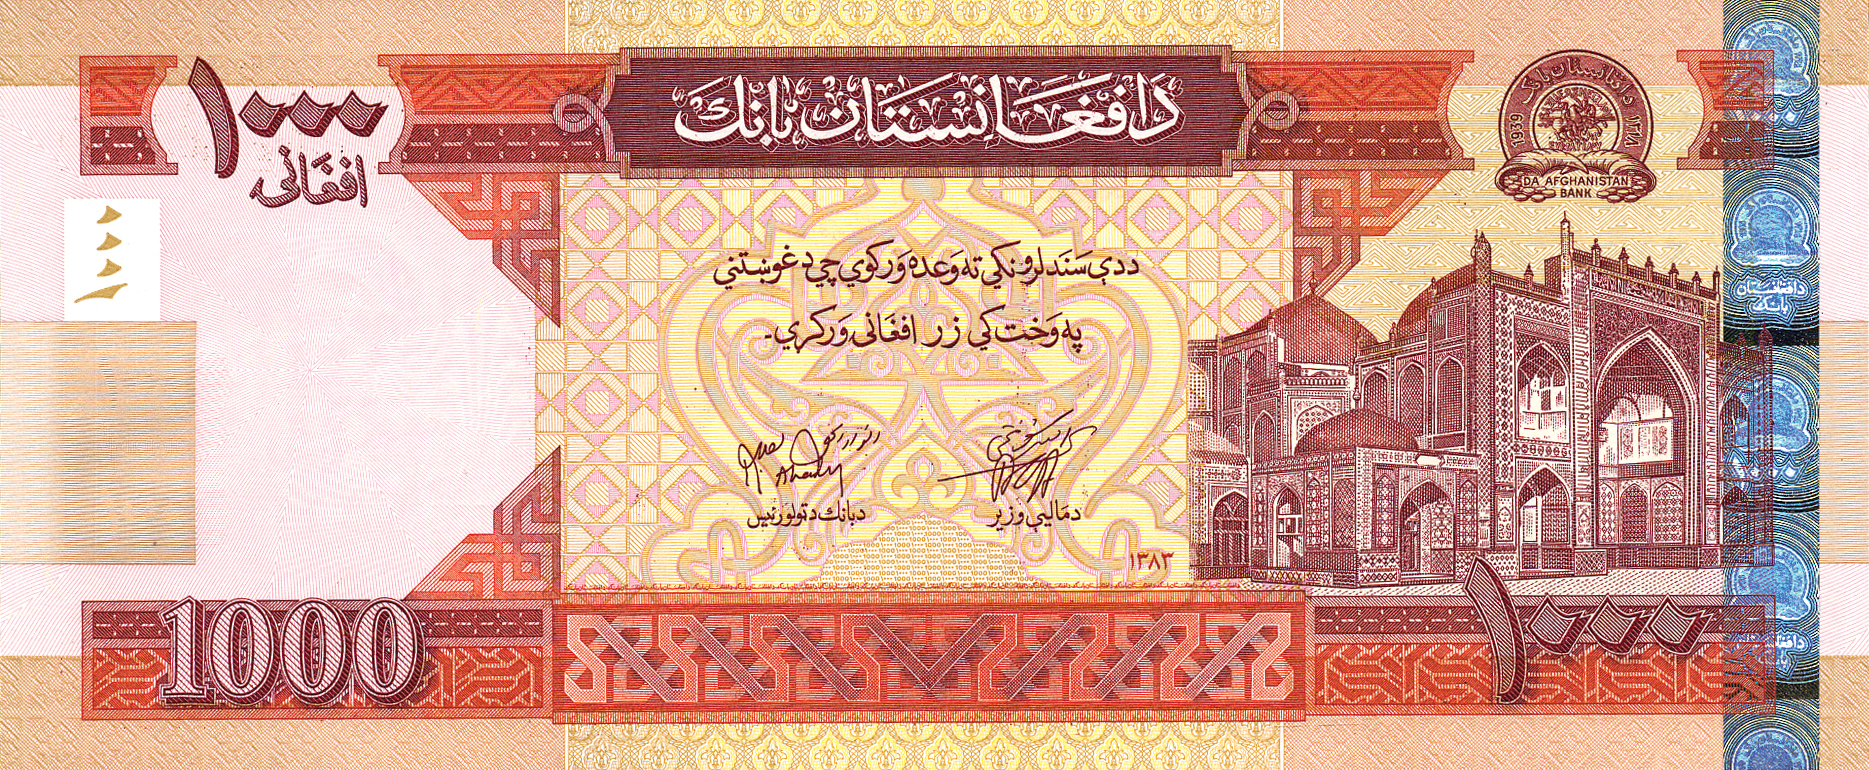 دافغانستان بانک
۱۰۰۰
افغانۍ
ددې سند لرونکي ته وعده ورکوي چې د غوښتنې
په وخت کې زر افغانۍ ورکړي.
د بانک د ټولو رئیس
د مالیې وزیر
۱۳۸۳
1939
۱۳۱۸
DA AFGHANISTAN
BANK
دافغانستان
بانک
1000
۱۰۰۰